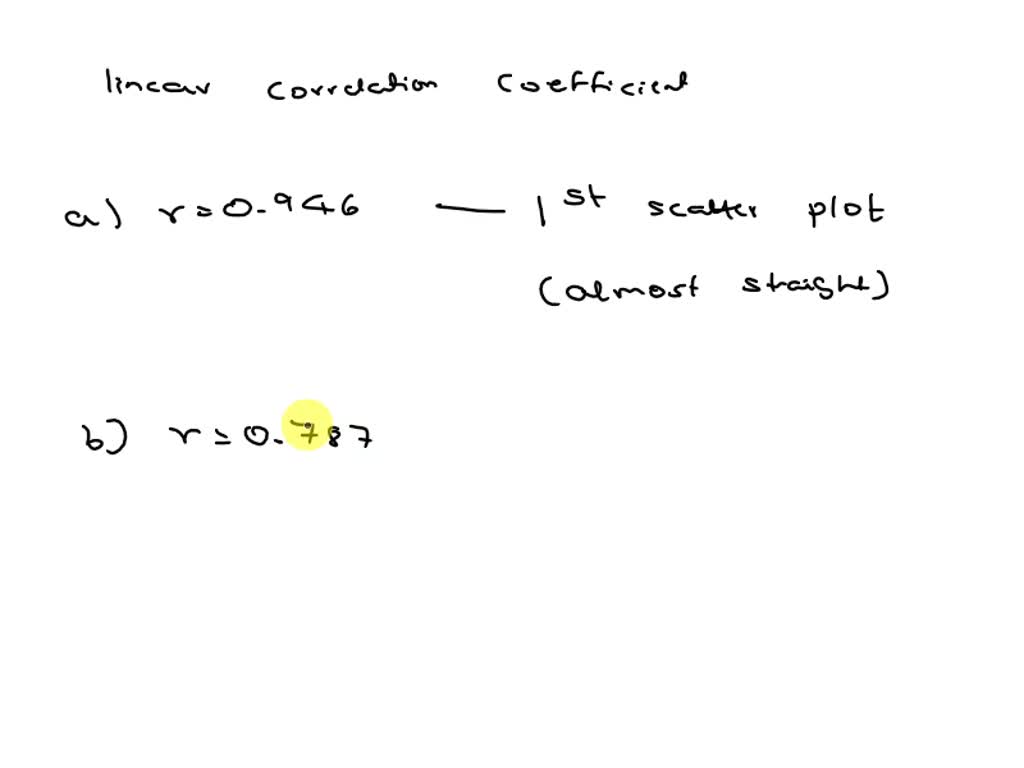 linear correlation coefficient
a) r = 0.946 — 1st scatter plot
(almost straight)
b) r = 0.787